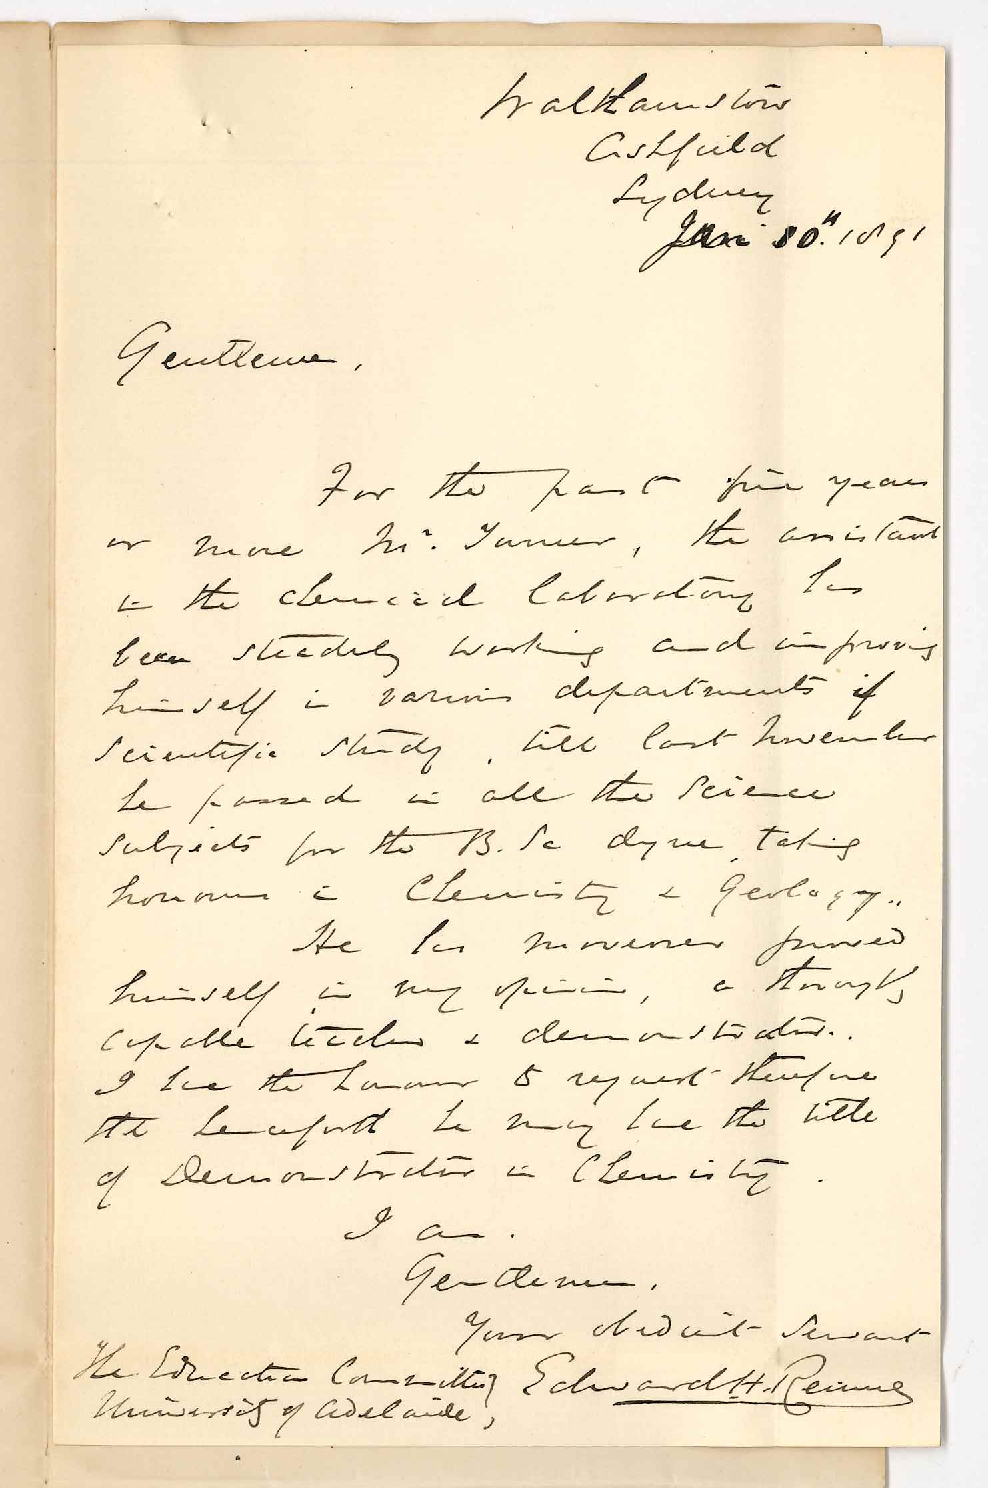 Walthamstow
Ashfield
Sydney
Jan 30th. 1891
Gentlemen,
For the past five years
or more Mr. Turner, the assistant
in the chemical laboratory has
been steadily working and improving
himself in various departments of
scientific study, till last November
he passed in all the Science
subjects for the B. Sc degree, taking
honours in Chemistry & Geology..
He has moreover proved
himself in my opinion, a thoroughly
capable teacher & demonstrator.
I have the honour to request therefore
tht henceforth he may have the title
of Demonstrator in Chemistry.
I am.
Gentlemen.
Your obedient Servant
Edward H. Rennie
The Education Committee
University of Adelaide,